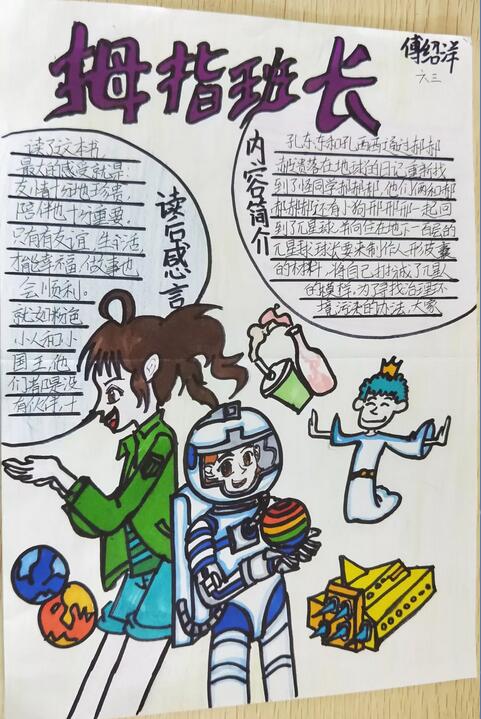 拇指班长
傅绍洋
六三
读后感言
读了这本书,
最大的感受就是:
友情十分地珍贵,
陪伴也十分重要。
只有有友谊,生活
才能幸福,做事也
会顺利。
就如粉色
小人和小
国王,他
们都是没
有伙伴,才
内容简介
孔东东和孔西西通过郝郝
郝遗落在地球的日记重新找
到了怪同学郝郝郝,他们俩和郝
郝郝还有小狗邢邢邢一起回
到了兀星球,并向住在地下一百层的
兀星球球长要来制作人形皮囊
的材料,将自己扮成了兀星人
的模样,为了寻找治理环
境污染的办法,大家